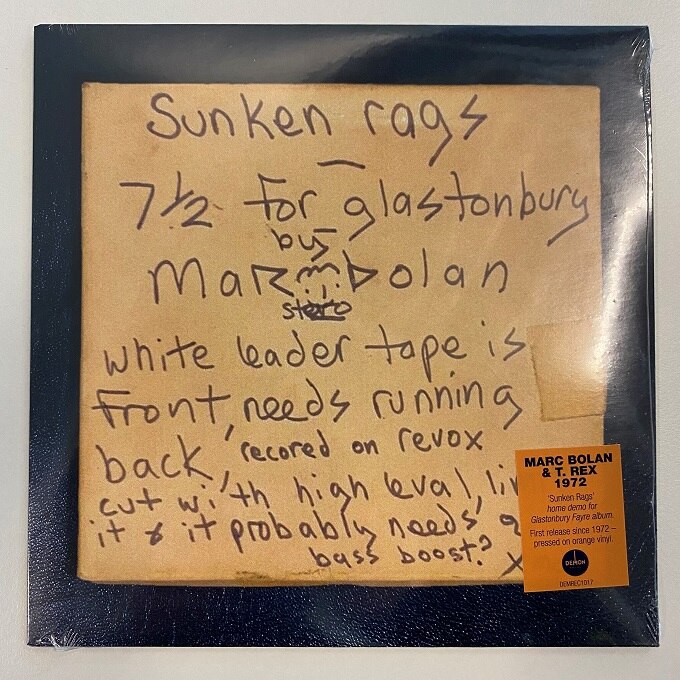 Sunken rags
7 1/2 for glastonbury
by
Marc Bolan
stereo
white leader tape is
front, needs running
back, recored on revox
cut with high leval,
it & it probably needs
bass boost? x
MARC BOLAN
& T. REX
1972
'Sunken Rags'
home demo for
Glastonbury Fayre album.
First release since 1972 –
pressed on orange vinyl.
DEMON
DEMREC1017